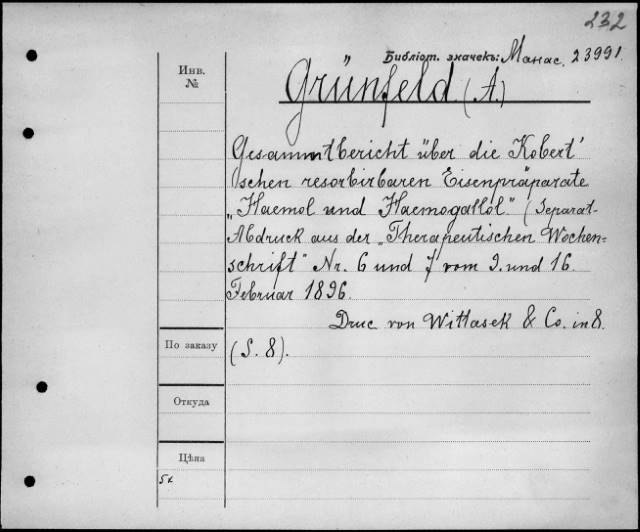 232
Библіот. значекъ: Манас. 23991.
Инв.
№
Grünfeld (A.)
Gesammtbericht über die Kobert'
schen resorbirbaren Eisenpräparate
„Haemol und Haemogallol" (Separat-
Abdruck aus der „Therapeutischen Wochen=
schrift" Nr. 6 und 7 vom 9. und 16.
Februar 1896.
Druc von Wittasek & Co. in 8.
По заказу
(S. 8).
Откуда
Цѣна
5к